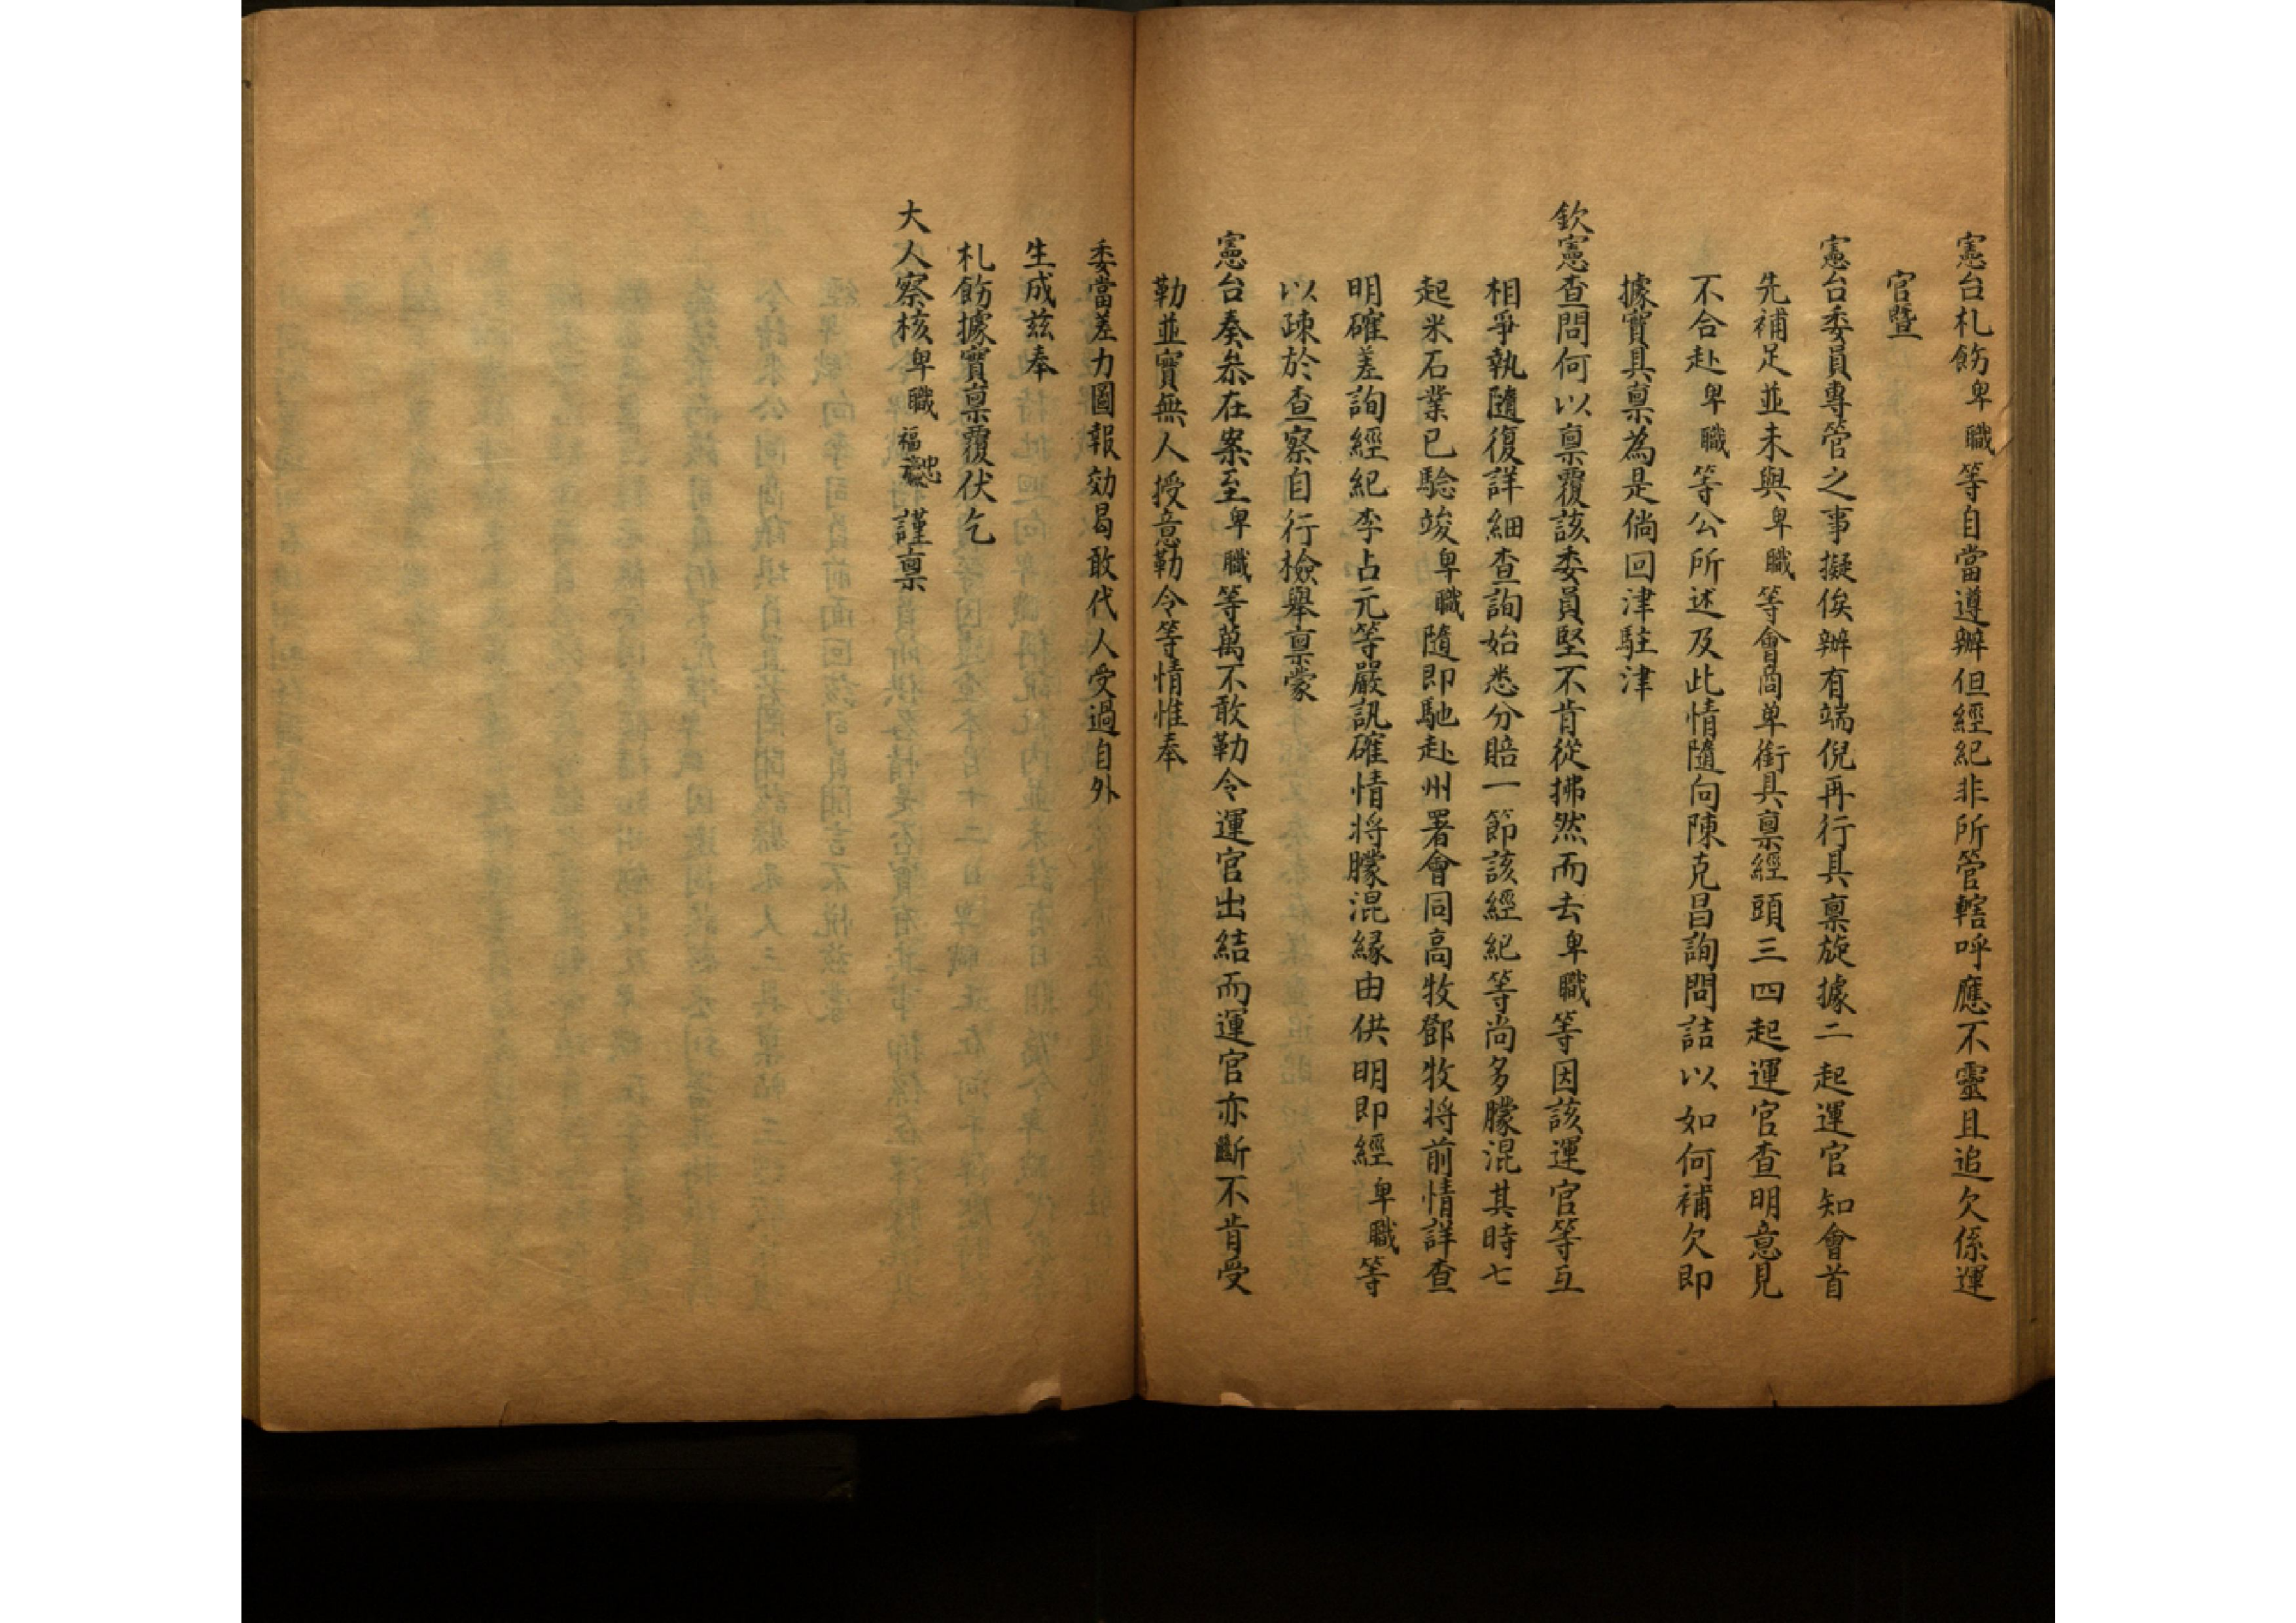 憲台札飭卑職等自當遵辦但經紀非所管轄呼應不靈且追欠係運
官暨
憲台委員專管之事擬俟辦有端倪再行具稟旋據二起運官知會首
先補足並未與卑職等會商单銜具稟經頭三四起運官查明意見
不合赴卑職等公所述及此情隨向陳克昌詢問詰以如何補欠即
據實具稟為是倘回津駐津
欽憲查問何以稟覆該委員堅不肯從拂然而去卑職等因該運官等互
相爭執隨復詳細查詢始悉分賠一節該經紀等尚多朦混其時七
起米石業已騐竣卑職隨即馳赴州署會同高牧鄧牧将前情詳查
明確差詢經紀李占元等嚴訊確情将朦混緣由供明即經卑職等
以疎於查察自行檢舉稟蒙
憲台奏叅在案至卑職等萬不敢勒令運官出結而運官亦斷不肯受
勒並實無人授意勒令等情惟奉
委當差力圖報効曷敢代人受過自外
生成兹奉
札飭據實稟覆伏乞
大人察核卑職福謹稟